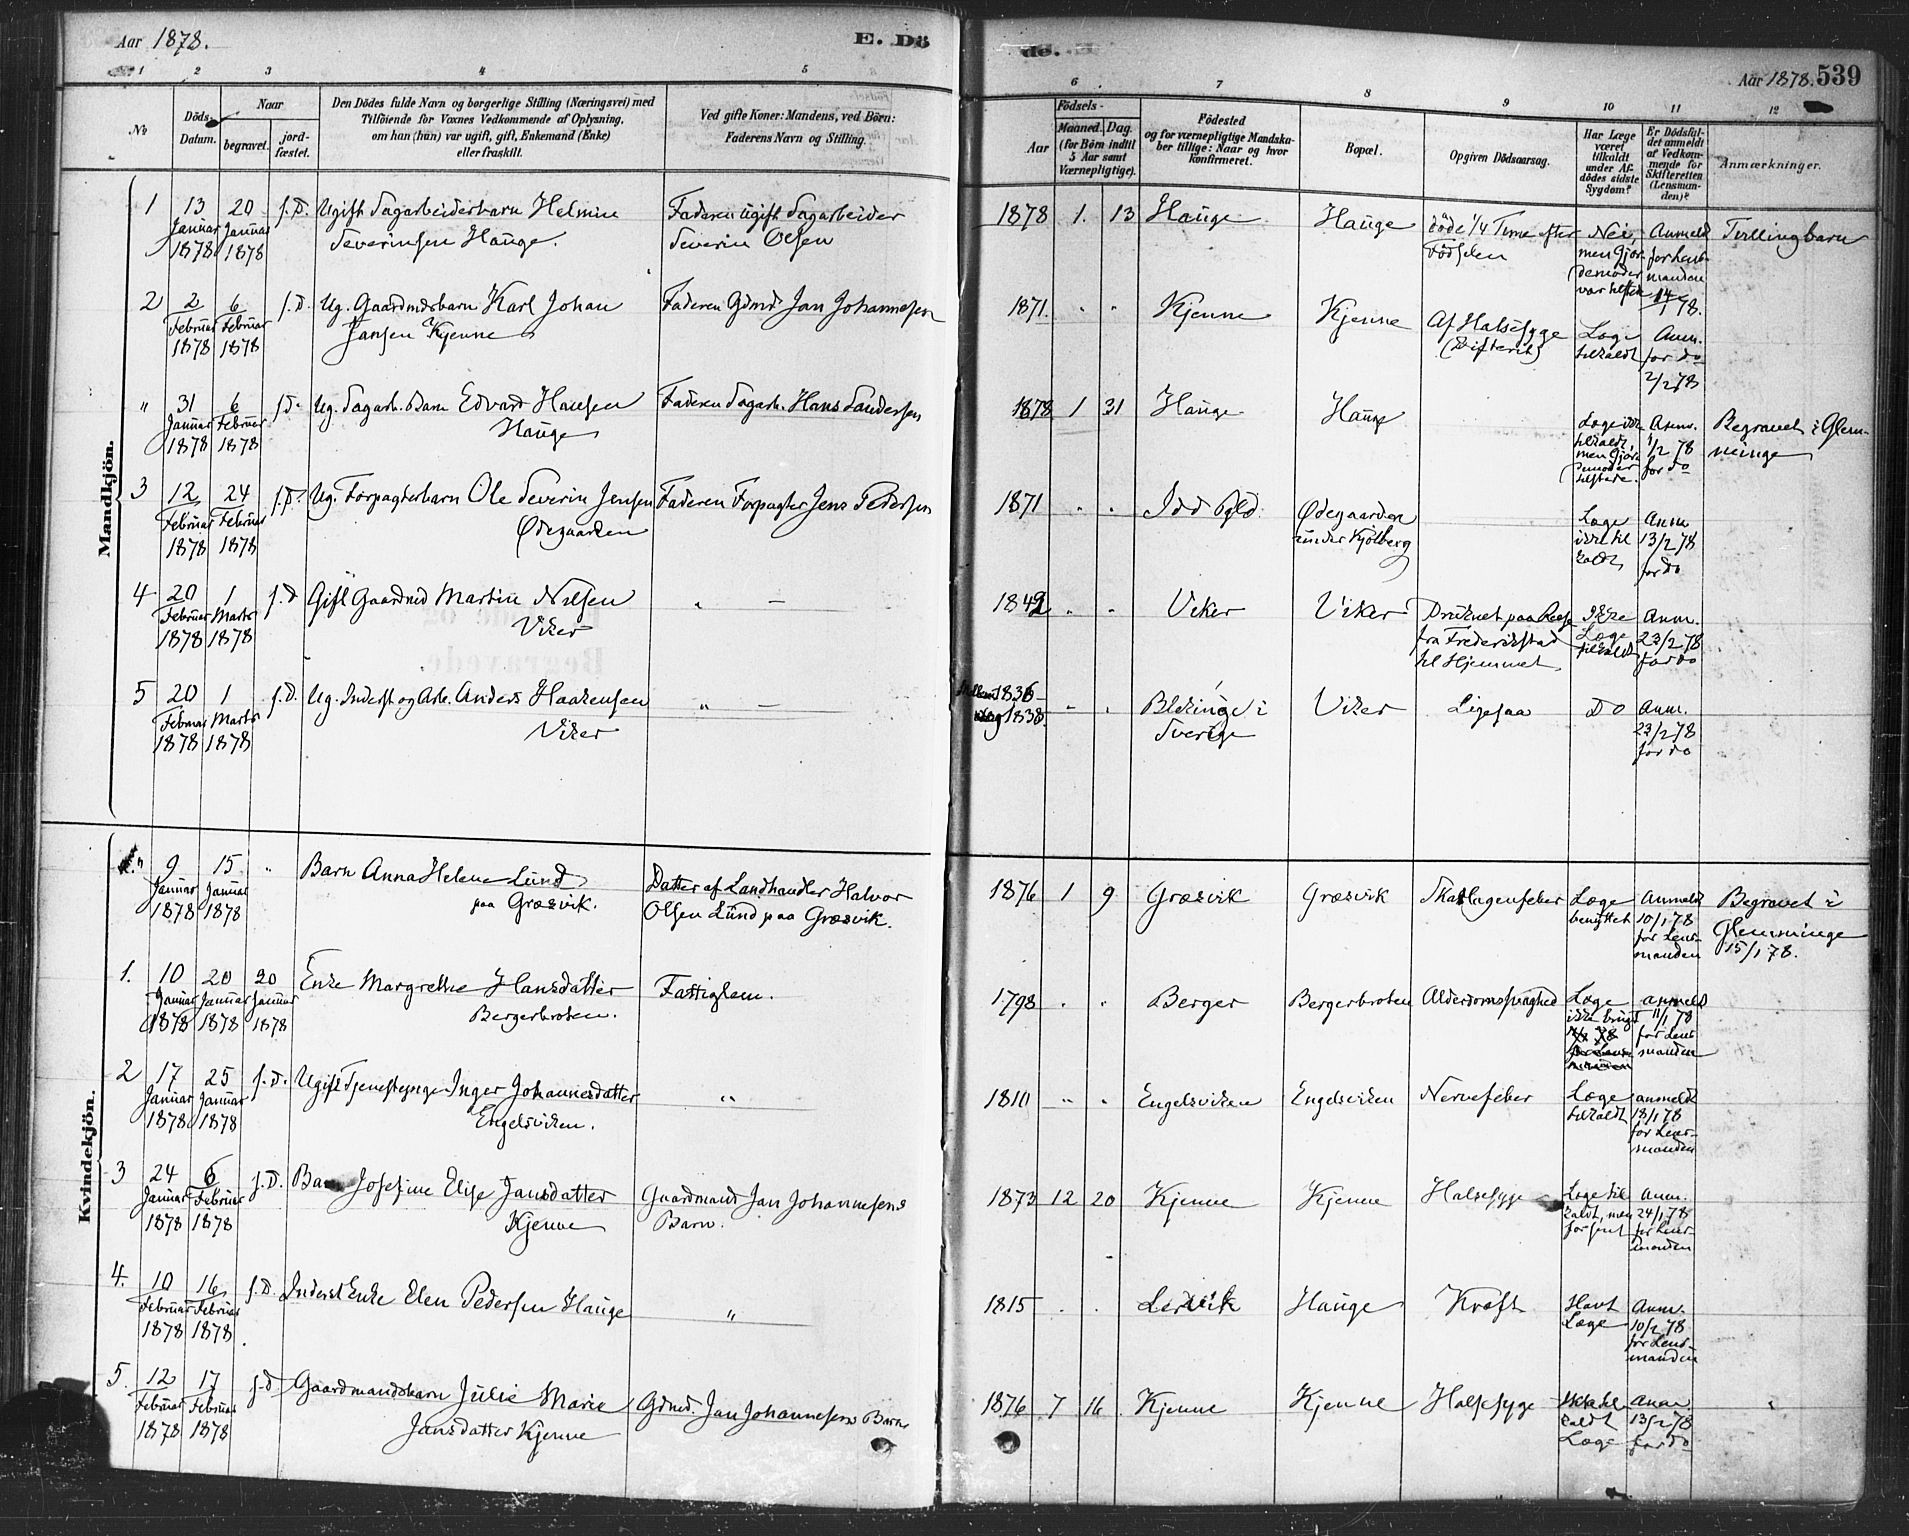 Aar 1878.
E. Dö
de.
Aar 1878. 539
1 2 3 4 5 6 7 8 9 10 11 12
No
Döds-
Datum.
Naar
begravet.
jord-
fæstet.
Den Dödes fulde Navn og borgerlige Stilling (Næringsvei) med
Tilföiende for Voxnes Vedkommende af Oplysning,
om han (hun) var ugift, gift, Enkemand (Enke)
eller fraskilt.
Ved gifte Koner: Mandens, ved Börn:
Faderens Navn og Stilling.
Födsels-
Aar
Maaned. Dag.
(for Börn indtil
5 Aar samt
Værnepligtige).
Födested
og for værnepligtige Mandska-
ber tillige: Naar og hvor
konfirmeret.
Bopæl.
Opgiven Dödsaarsag.
Har Læge
været
tilkaldt
under Af-
dödes sidste
Sygdom?
Er Dödsfal-
det anmeldt
af Vedkom-
mende for
Skifteretten
(Lensman-
den)?
Anmærkninger.
Mandkjön.
1 13 Januar 1878 20 Januar 1878 f.D. Ugift Sagarbeiderbarn Helmin
Severinsen Hauge.
Faderen Ugift Sagarbeider
Severin Olsen
1878 1. 13 Hauge Hauge döde 1/4 Time efter
Födselen
Nei,
men Gjor-
demoder
var tilstede
Anmeldt
for Lens-
manden
14/1 78.
Tvillingbarn
2 2 Februar 1878 6 Februar 1878 f.D. Ug. Gaardmdsbarn Karl Johan
Jansen Kjenne
Faderen Gdmd. Jan Johannesen
1871. " " Kjenne Kjenne Af Halssyge
(Difterit)
Læge
tilkaldt
Anm.
for do
2/2 78
" 31 Januar 1878 6 Februar 1878 f.D. Ug. Sagarb. Barn Edvard Hansen
Hauge
Faderen Sagarb. Hans Andersen
1878 1 31 Hauge Hauge
Læge ikke
tilkaldt,
men Gjor-
demoder
tilstede.
Anm.
1/2 78
for do
Begravet i Glem-
minge
3 12 Februar 1878 24 Februar 1878 f.D. Ug. Forpagterbarn Ole Severin Jensen
Ødegaarden
Faderen Forpagter Jens Pedersen
1871 " " Idd Pgld. Ødegaarden
under Kjölberg
Læge
ikke til
kaldt
Anm.
13/2 78
for do
4 20 Februar 1878 1 Marts 1878 f.D Gift Gaardmd Martin Nilsen
Viker
" —
1842 " " Viker Viker Druknet paa Reise
fra Frederikstad
til Hjemmet
Ikke
Læge
tilkaldt
Anm.
23/2 78
for do
5 20 Februar 1878 1 Marts 1878 f.D. Ug. Inderst og Arb. Anders Haakensen
Viker
" —
Mellem 1836
og 1838 " " Blekinge i
Sverige
Viker Ligesaa Do Anm.
23/2 78
for do
Kvindekjön.
" 9 Januar 1878 15 Januar 1878 " Barn Anna Helene Lund
paa Græsvik.
Datter af Landhandler Halvor
Olsen Lund paa Græsvik.
1876 1 9 Græsvik Græsvik Skarlagenfeber Læge
benyttet
Anmeldt
10/1 78
for Lens-
manden
Begravet i
Glemminge
15/1 78.
1. 10 Januar 1878 20 Januar 1878 20 Januar 1878 Enke Margrethe Hansdatter
Bergerbroten.
Fattiglem.
1798 " " Berger Bergerbroten Alderdomssvaghed Læge
ikke brugt
Anmeldt
11/1 78
for Lens-
manden
2 17 Januar 1878 25 Januar 1878 f.D. Ugift Tjenestepige Inger Johannesdatter
Engelsviken.
"
1810 " " Engelsviken Engelsviken Nervefeber Læge
tilkaldt
anmeldt
18/1 78
for Lens-
manden
3 24 Januar 1878 6 Februar 1878 f.D. Barn Josefine Elise Jansdatter
Kjenne
Gaardmand Jan Johannesens
Barn.
1873 12 20 Kjenne Kjenne Halssyge Læge til
kaldt, men
for sent
Anm.
24/1 78
for Lens-
manden
4. 10 Februar 1878 16 Februar 1878 f.D. Inderst Enke Elen Pedersen Hauge
"
1815 " " Lervik Hauge Kræft Havt
Læge
Anm.
10/2 78
for Lens-
manden
5. 12 Februar 1878 17 Februar 1878 f.D Gaardmandsbarn Julie Marie
Jansdatter Kjenne
Gdmd. Jan Johannesens Barn
1876 7 16 Kjenne Kjenne Halssyge Ikke til
kaldt
Læge
Anm.
13/2 78
for do